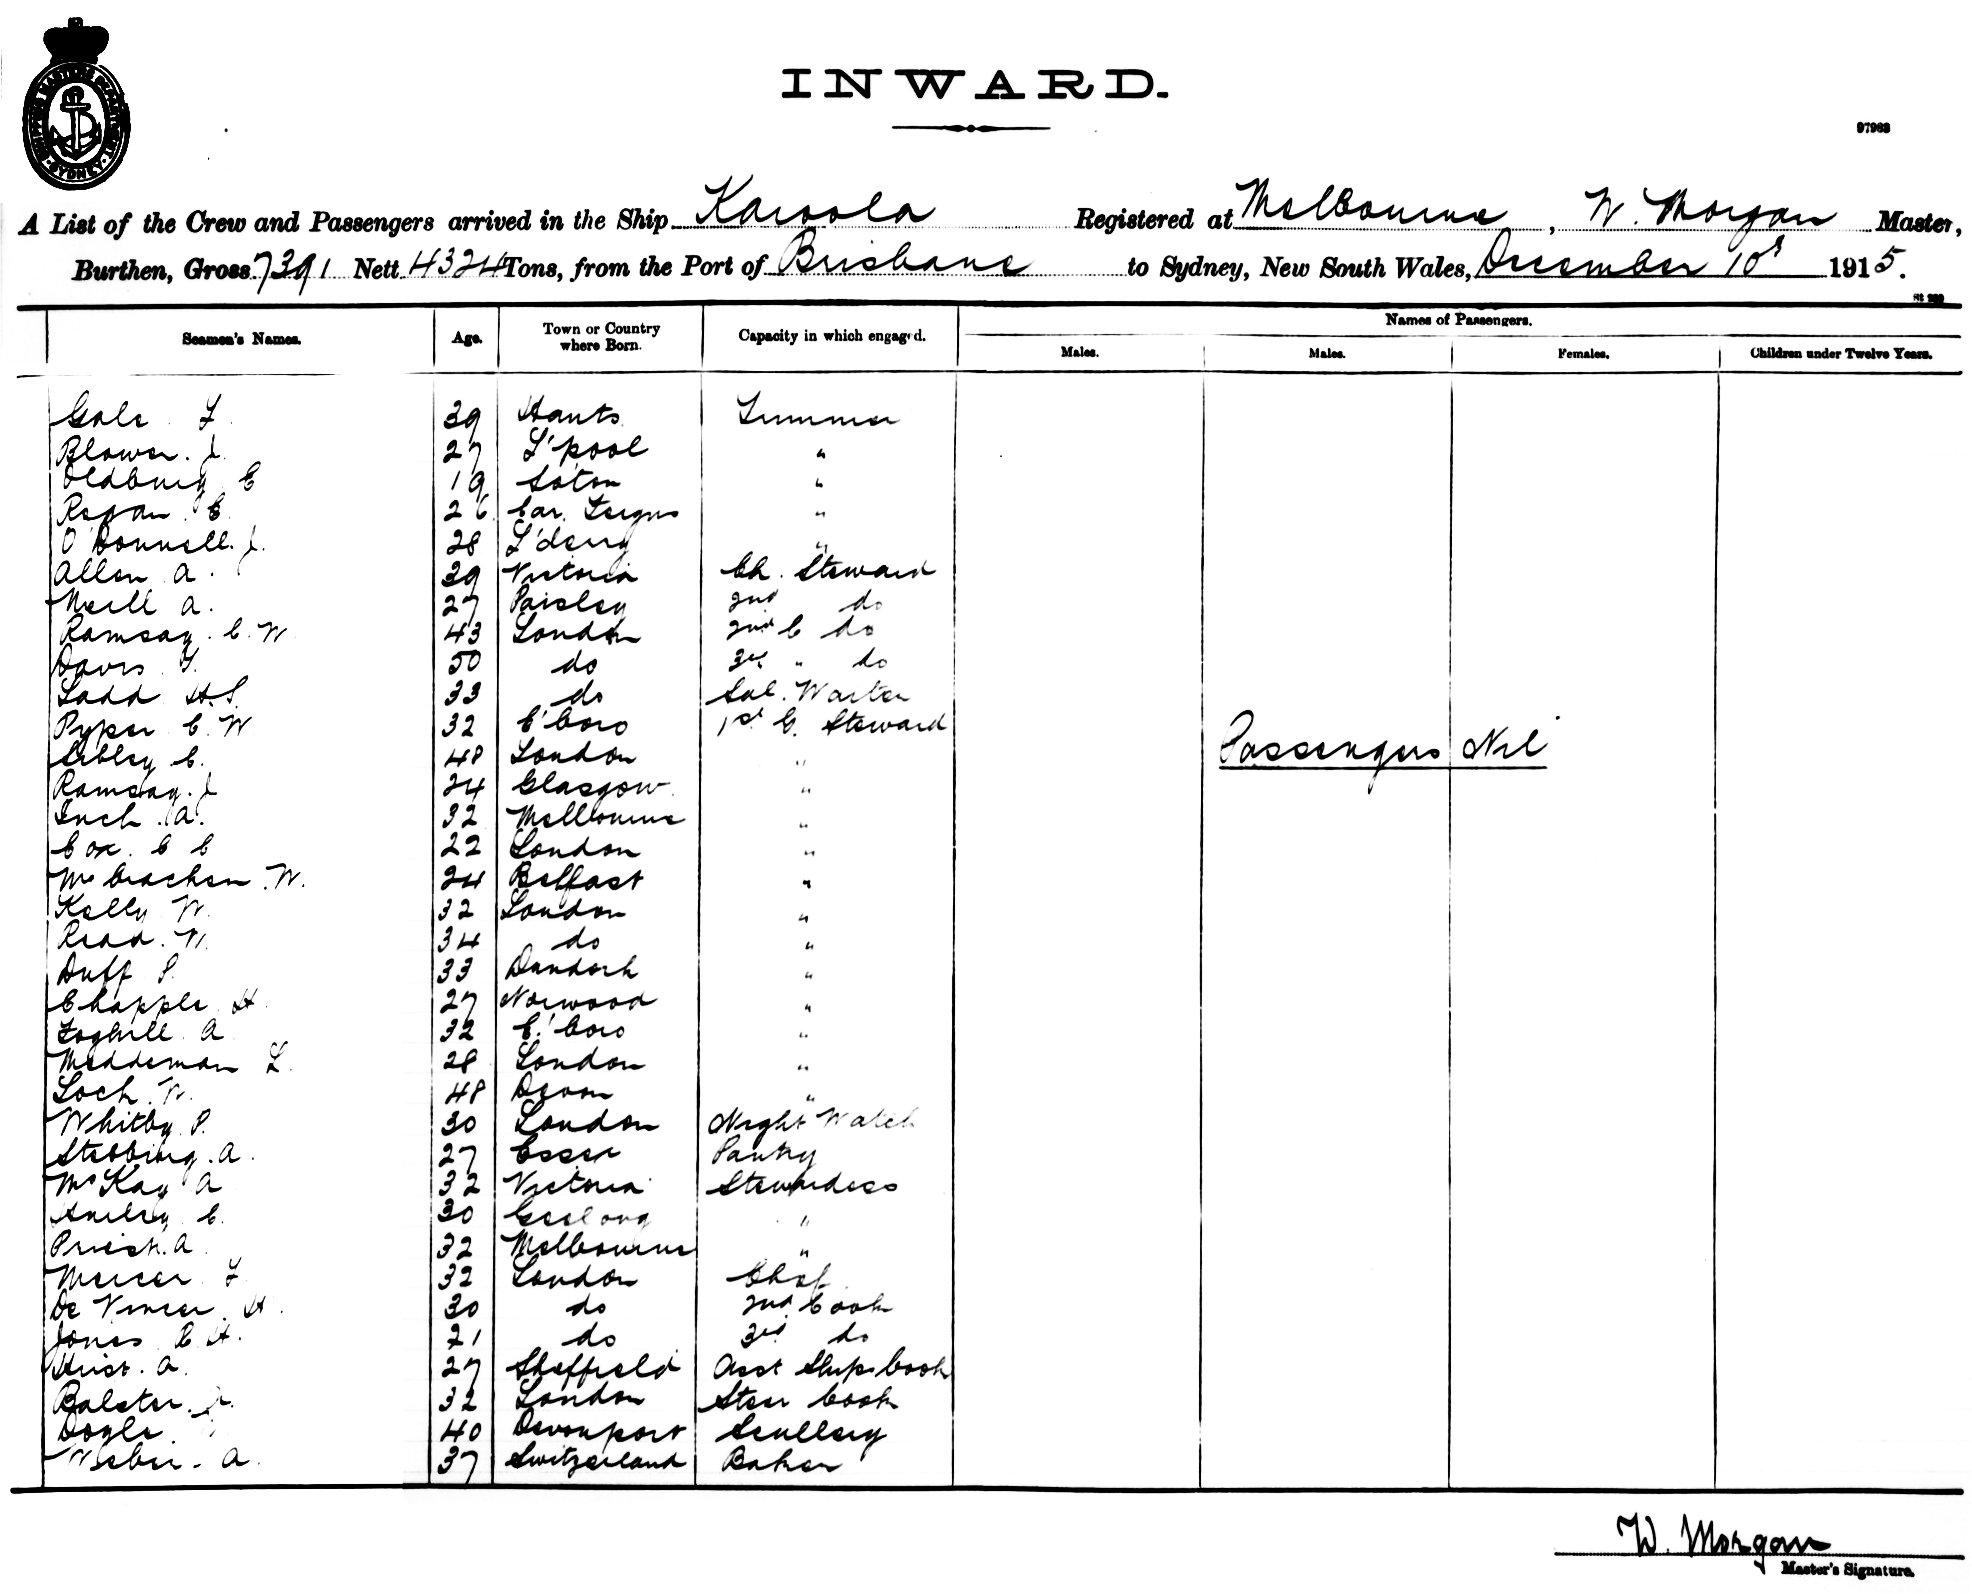 SHIPPING MASTERS DEPARTMENT · SYDNEY ·
INWARD.
97963
A List of the Crew and Passengers arrived in the Ship Karoola Registered at Melbourne, W. Morgan Master,
Burthen, Gross 7391 Nett 4324 Tons, from the Port of Brisbane to Sydney, New South Wales, December 10 1915.
Names of Passengers.
Seamen's Names. Age. Town or Country where Born. Capacity in which engaged. Males. Males. Females. Children under Twelve Years.
Gale F 39 Hants Trimmer
Blower. J. 27 L'pool "
Oldbury E 19 So'ton "
Regan. C. 26 Car. Fergus "
O'Donnell. J. 28 L'derry "
Allen A. 39 Victoria Ch. Steward
Neill A. 27 Paisley 2nd do
Ramsay. C. W 43 London 2nd C do
Davis 50 do 3rd " do
Ladd H.S. 33 do Sal. Waiter
Pyper C. W 32 C'boro 1st C. Steward
Sibley C. 48 London "
Passengers Nil
Ramsay. J 24 Glasgow "
Inch. A. 32 Melbourne "
Cox. C C 22 London "
McCracken. W. 24 Belfast "
Kelly W. 32 London "
Read. W. 34 do "
Duff P. 33 "
Chapple H. 27 Norwood "
Foghill A 32 C'boro "
Meddeman L. 28 London "
Loch. W. 48 Devon "
Whitby P. 30 London Night Watch
Stebbing. A. 27 Essex Pantry
McKay A 32 Victoria Stewardess
C. 30 Geelong "
Priest. A. 32 Melbourne "
Mercer F 32 London Chef
De Vincer. H. 30 do 2nd Cook
Jones C. H. 21 do 3rd do
Hirst. A. 27 Sheffield Asst Ships Cook
Balster. J. 32 London Steer Cook
Doyle 40 Devonport Scullery
Weber. A. 37 Switzerland Baker
W. Morgan
Master's Signature.